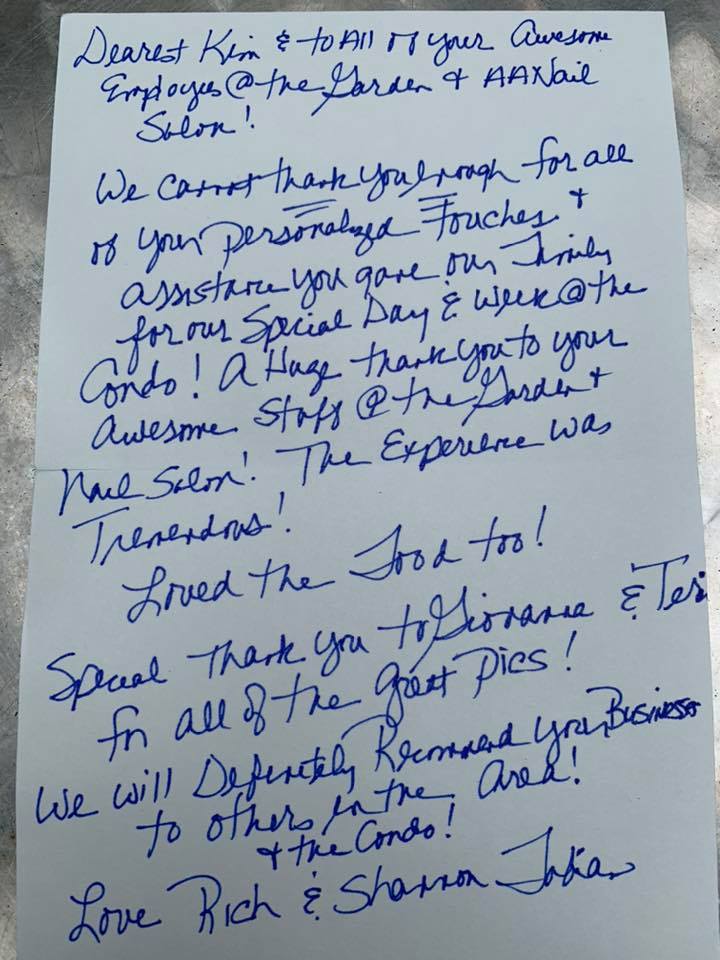 Dearest Kim & to All of your Awesome
Employees @ the Garden + AA Nail
Salon!
We cannot thank you Enough for all
of your personalized Touches +
assistance you gave our Family
for our Special Day & week @ the
Condo! A Huge thank you to your
Awesome Staff @ the Garden +
Nail Salon! The Experience was
Tremendous!
Loved the Food too!
Special Thank you to Giovanna & Teri
for all of the great Pics!
We will Definitely Recommend your Business
to others in the Area!
+ the Condo!
Love Rich & Shannon